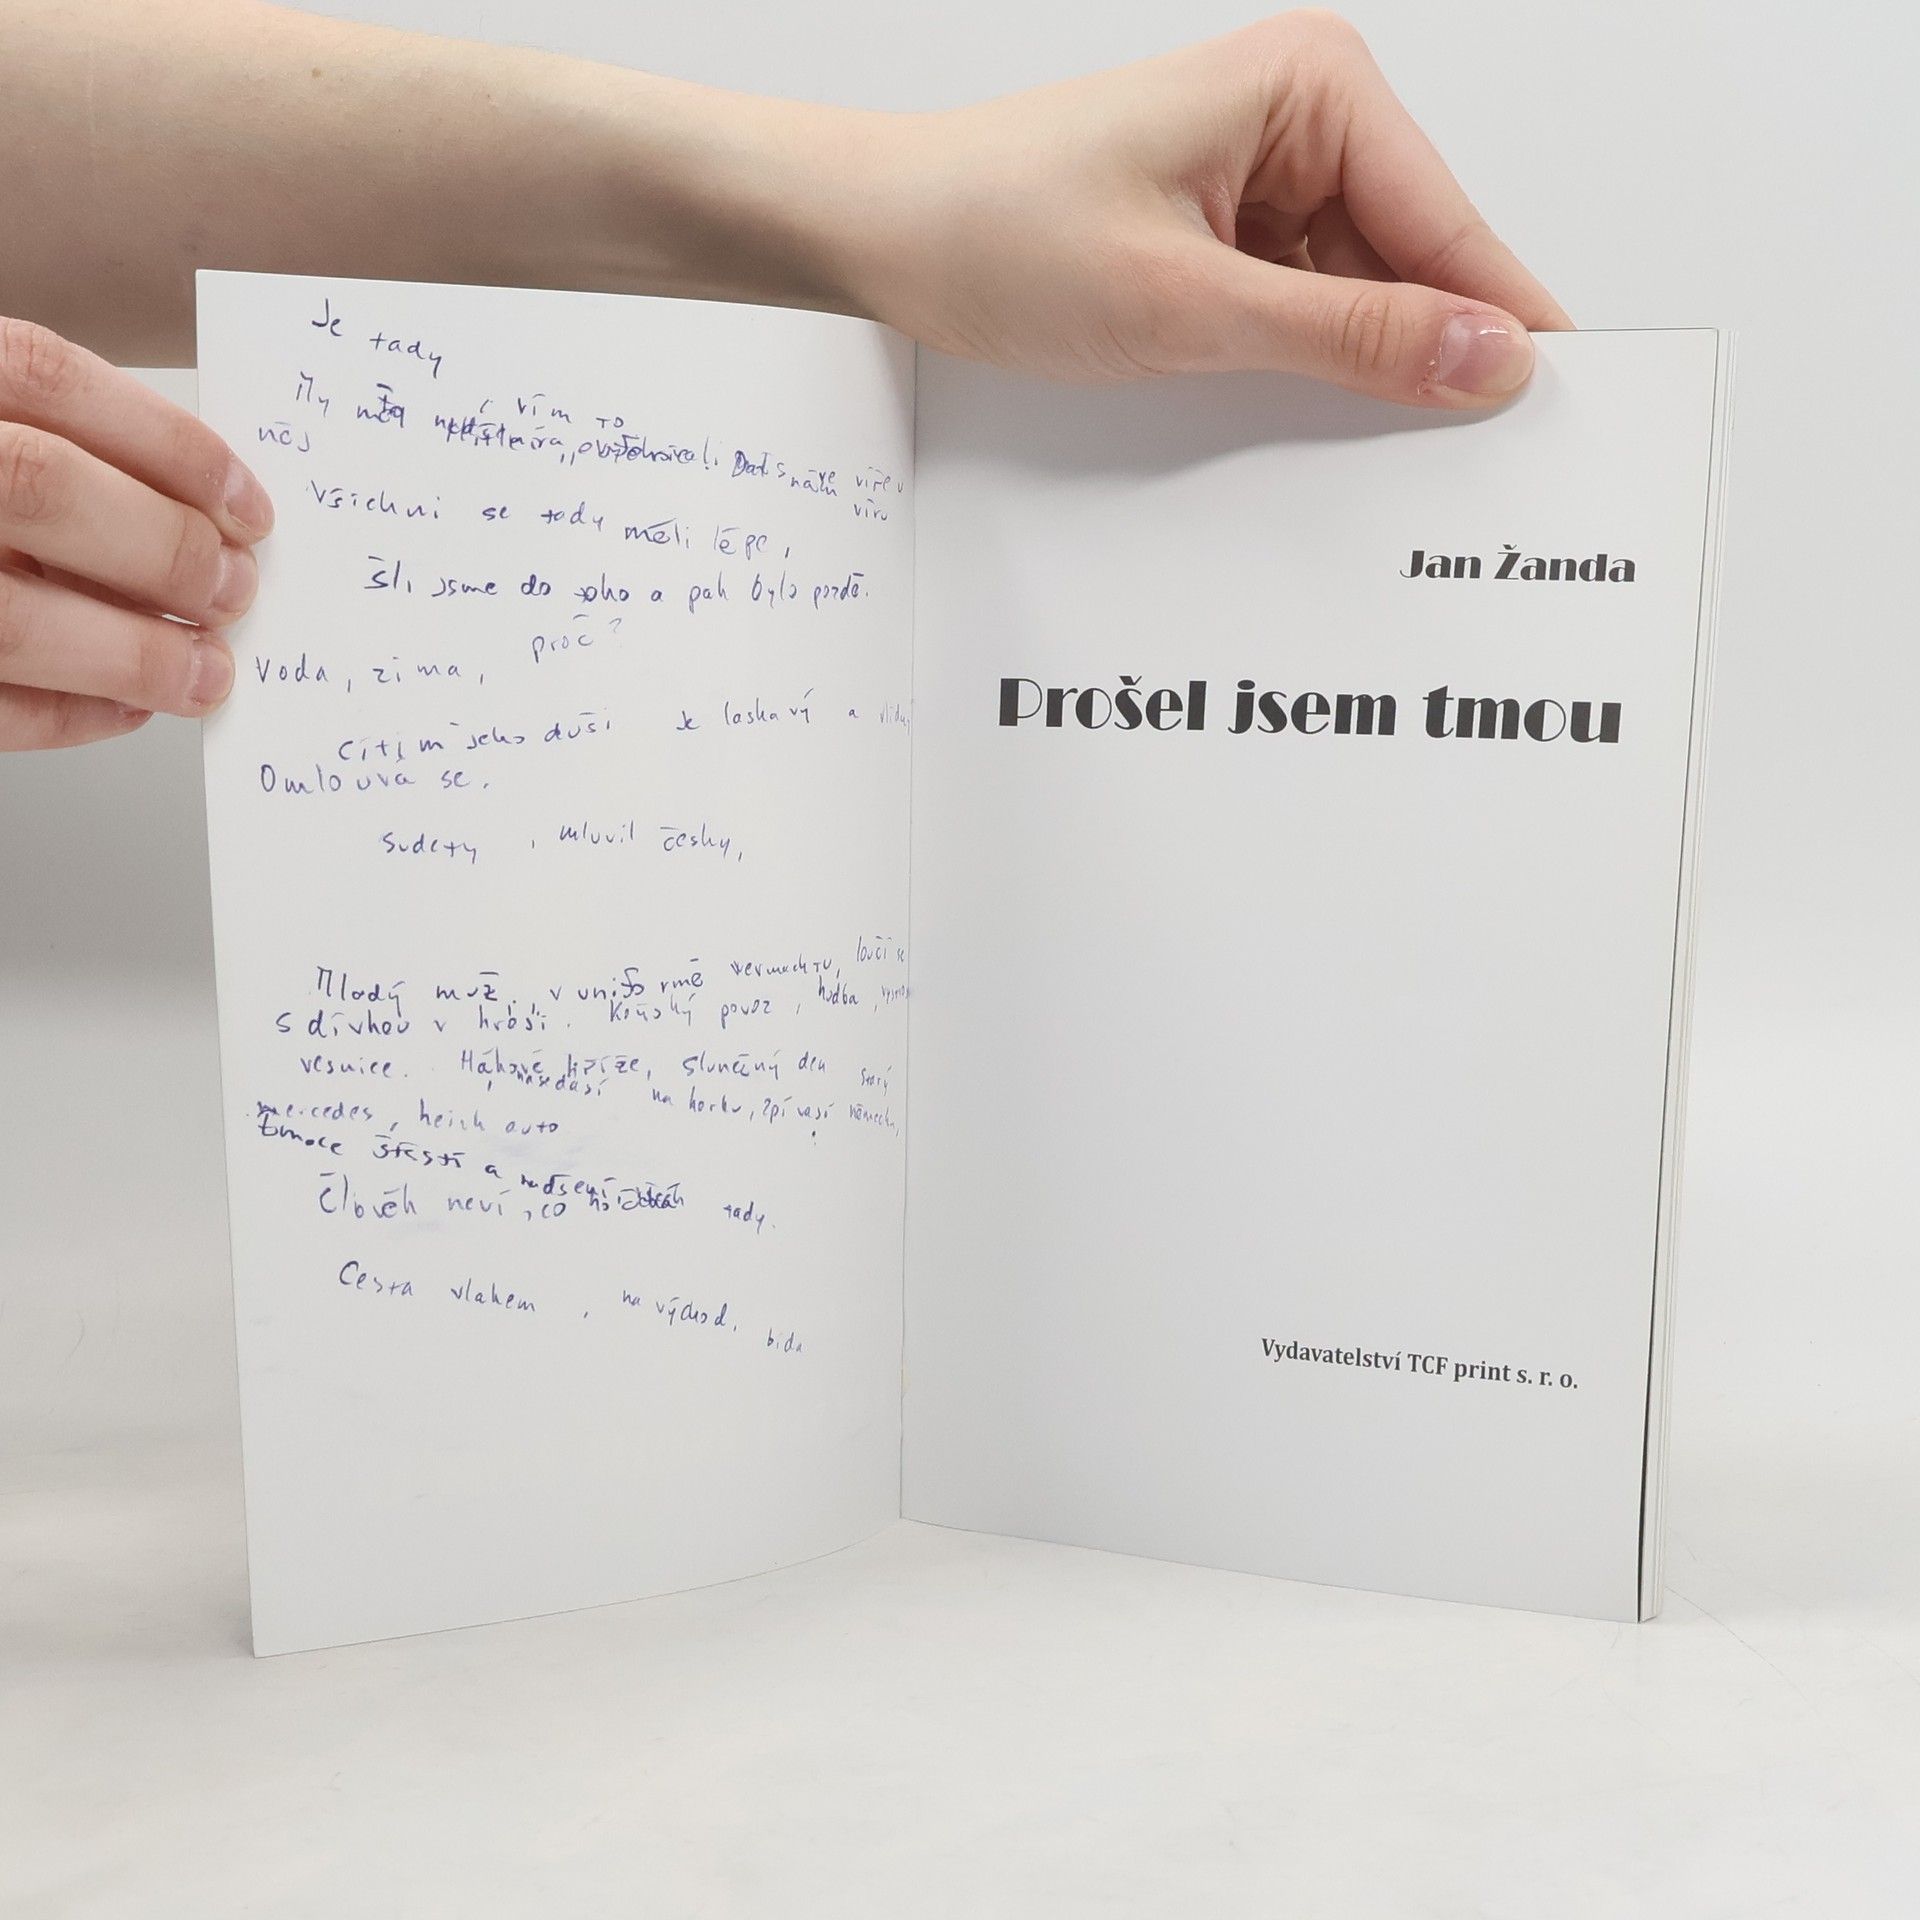 Je tady
My
vím to
něj
víru
Všichni se tady měli lépe,
Šli jsme do toho a pak bylo pozdě.
proč?
Voda, zima,
cítím jeho duši Je laskavý a
Omlouvá se.
Sudety, mluvil česky,
Mladý muž, v uniformě wermachtu, loučí se
s dívkou v hrosi. Koňský povoz, hudba,
vesnice. Hákové kříže, slunečný den starý
nasedasí na korbu, zpívasí německy,
mercedes, heink auto
Emoce štěstí a nadšení
Člověk neví, co ho čeká tady.
Cesta vlakem, na východ, bída
Jan Žanda
Prošel jsem tmou
Vydavatelství TCF print s. r. o.